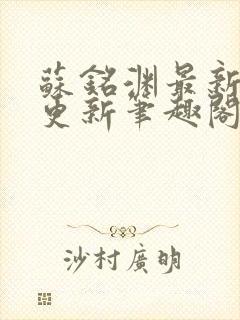 蘇銘淵最新
更新筆趣閣
沙村廣明